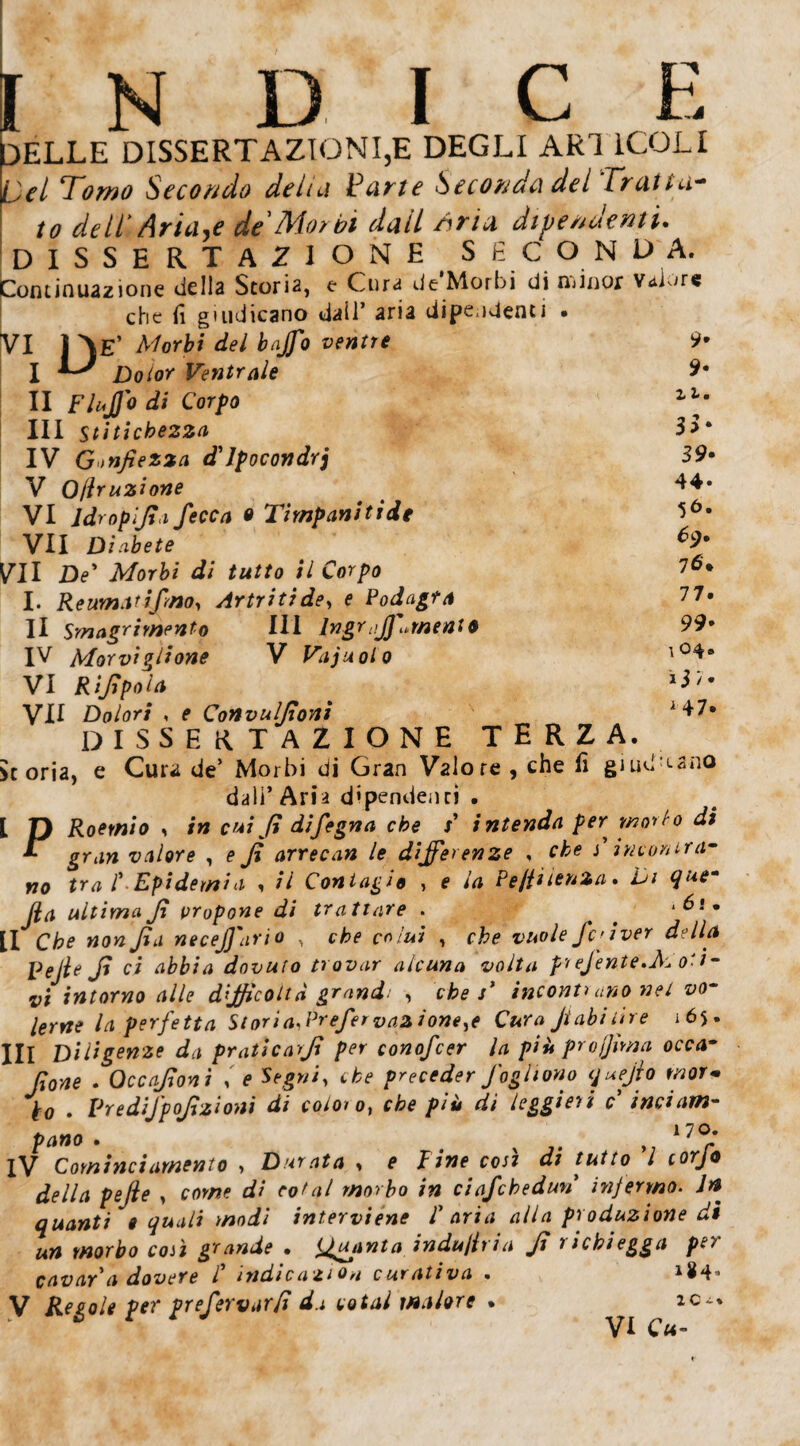 INDICE
DELLE DISSERTAZIONI,E DEGLI ARTICOLI
Del Tomo Secondo della Parte Seconda del Tratta-
to dell' Aria,e de' Morbi dall Aria dipendenti.
DISSERTAZIONE SECONDA.
Continuazione della Storia, e Cura de'Morbi di minor valore
che ſi giudicano dall' aria dipendenti .
VI DE' Morbi del baſſo ventre 9.
I Dolor Ventrale 9.
II Fluſſo di Corpo 22.
III Stitichezza 33.
IV Gonfiezza d'Ipocondrj 39.
V Oſtruzione 44.
VI Idropiſia ſecca o Timpanitide 56.
VII Diabete 69.
VII De' Morbi di tutto il Corpo 76.
I. Reumatiſmo, Artritide, e Podagra 77.
II Smagrimento III Ingraſſamento 99.
IV Morviglione V Vajuolo 104.
VI Riſipola 137.
VII Dolori , e Convulſioni 147.
DISSERTAZIONE TERZA.
Storia, e Cura de' Morbi di Gran Valore , che ſi giudicano
dall' Aria dipendenti .
I PRoemio , in cui ſi diſegna che s' intenda per morbo di
gran valore , e ſi arrecan le differenze , che s' incontra-
no tra l' Epidemia , il Contagio , e la Peſtilenza. Di que-
ſta ultima ſi propone di trattare . 161.
II Che non ſia neceſſario , che colui , che vuole ſcriver della
Peſte ſi ci abbia dovuto trovar alcuna volta preſente.Moti-
vi intorno alle difficoltà grandi , che s' incontrano nel vo-
lerne la perfetta Storia,Preſervazione,e Cura ſtabilire 165.
III Diligenze da praticarſi per conoſcer la più proſſima occa-
ſione . Occaſioni , e Segni, che preceder ſogliono queſto mor-
bo . Prediſpoſizioni di coloro, che più di leggieri c' inciam-
pano . 170.
IV Cominciamento , Durata , e Fine così di tutto 'l corſo
della peſte , come di cotal morbo in ciaſchedun' infermo. In
quanti e quali modi interviene l' aria alla produzione di
un morbo così grande . Quanta induſtria ſi richiegga per
cavar'a dovere l' indicazion curativa . 184.
V Regole per preſervarſi da cotal malore .
VI Cu-